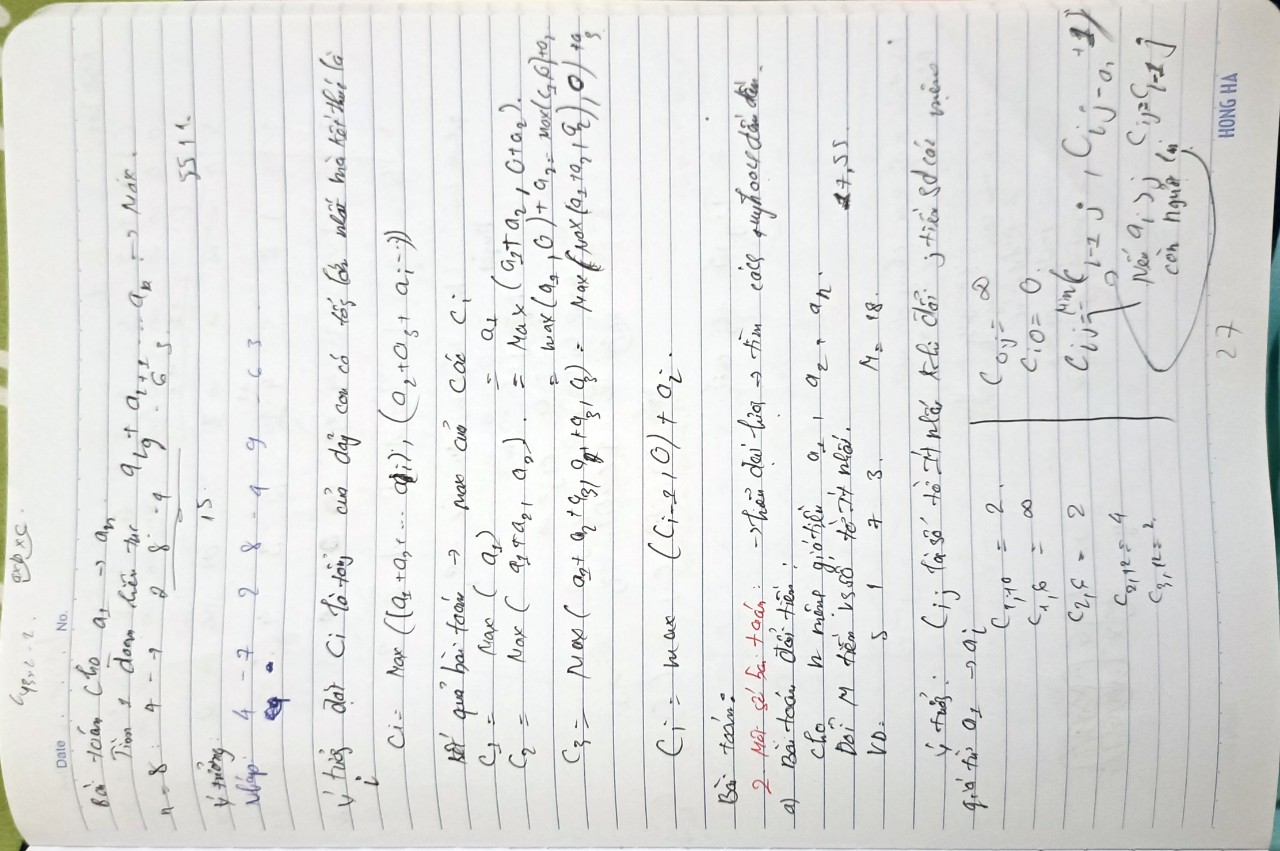 C₄₃ₓ₂₋₂ axbxc.
Date . . . No.
Bài toán Cho a₁ → aₙ
Tìm 1 đoạn liên tục a_L + a_{L+1} ... a_R → Max.
n = 8: 4 -7 2 8 -4 9 -6 3
15
5511.
ý tưởng
Nháp: 4 -7 2 8 -4 9 -6 3
ý tưởng đặt Ci là tổng của dãy con có tổng lớn nhất mà kết thúc là
i
Ci = Max ((a₁+a₂+... aᵢ), (a₂+a₃+ aᵢ...))
kết quả bài toán → max của các Ci
C₁ = Max ( a₁) = a₁
C₂ = Max ( a₁+a₂, a₂). = Max (a₁+a₂, 0+a₂).
= max(a₁, 0) + a₂ = max(C₁,0)+a₂
C₃ = Max( a₁+ a₂+a₃, a₂+a₃, a₃) = Max(Max(a₁+a₂, a₂), 0) + a₃
Ci = max (Ci-1, 0) + ai.
Bài toán:
2 Một số bài toán: → hiểu đại lượng → tìm cách quy hoạch dần dần.
a) Bài toán đổi tiền:
Cho n mệnh giá tiền a₁, a₂, aₙ.
Đổi M tiền vs số tờ ít nhất.
17,55
VD: 5 1 7 3. M = 18.
ý tưởng: Cij là số tờ ít nhất khi đổi j tiền sd các mệnh
giá từ a₁ → ai
C₁,₁₀ = 2.
C₁,₆ = ∞
C₂,₆ = 2
C₂,₁₂ = 4
C₃,₁₂ = 2
C₀,j = ∞
Ci0 = 0.
Cij = Min(C i-1 j, C i j-ai +1)
Nếu ai > j Cij = Ci-1 j
còn ngược lại
27
HONG HA